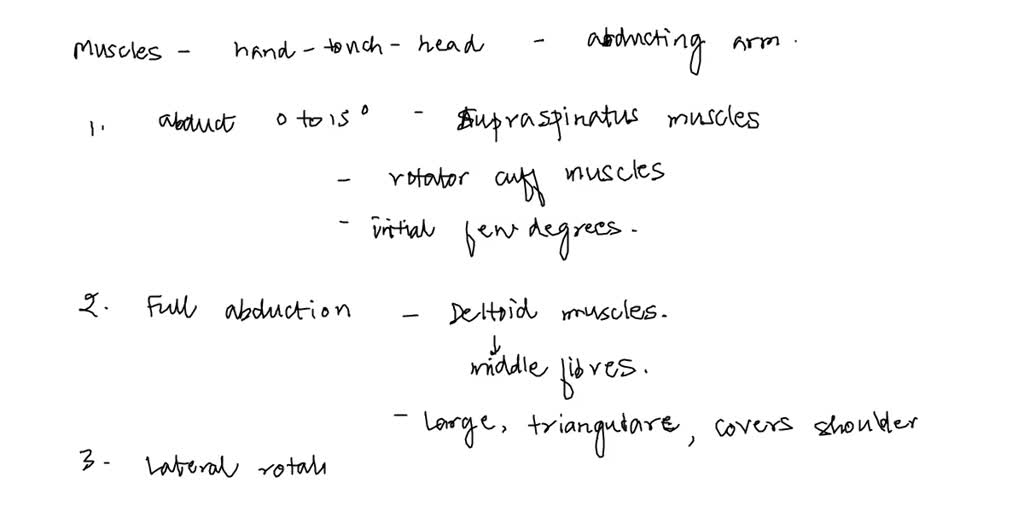 Muscles - hand - touch - head - abducting arm.
1. abduct 0 to 15° - Supraspinatus muscles
- rotator cuff muscles
- initial few degrees.
2. Full abduction - Deltoid muscles.
↓
middle fibres.
- Large, triangulare, covers shoulder
3. Lateral rotati